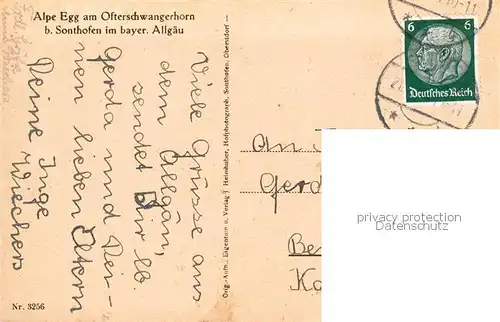 Alpe Egg am Ofterschwangerhorn
b. Sonthofen im bayer. Allgäu
Viele Grüsse aus
dem Allgäu,
sendet Dir lb.
Gerda und Dei-
nen lieben Eltern
Deine Inge
Wiechers
Nr. 3256
Org.-Aufn., Eigentum u. Verlag: Heimhuber, Hofphotograph, Sonthofen, Oberstdorf
6 6
Deutsches Reich
An
Gerd
Be
privacy protection
watermark